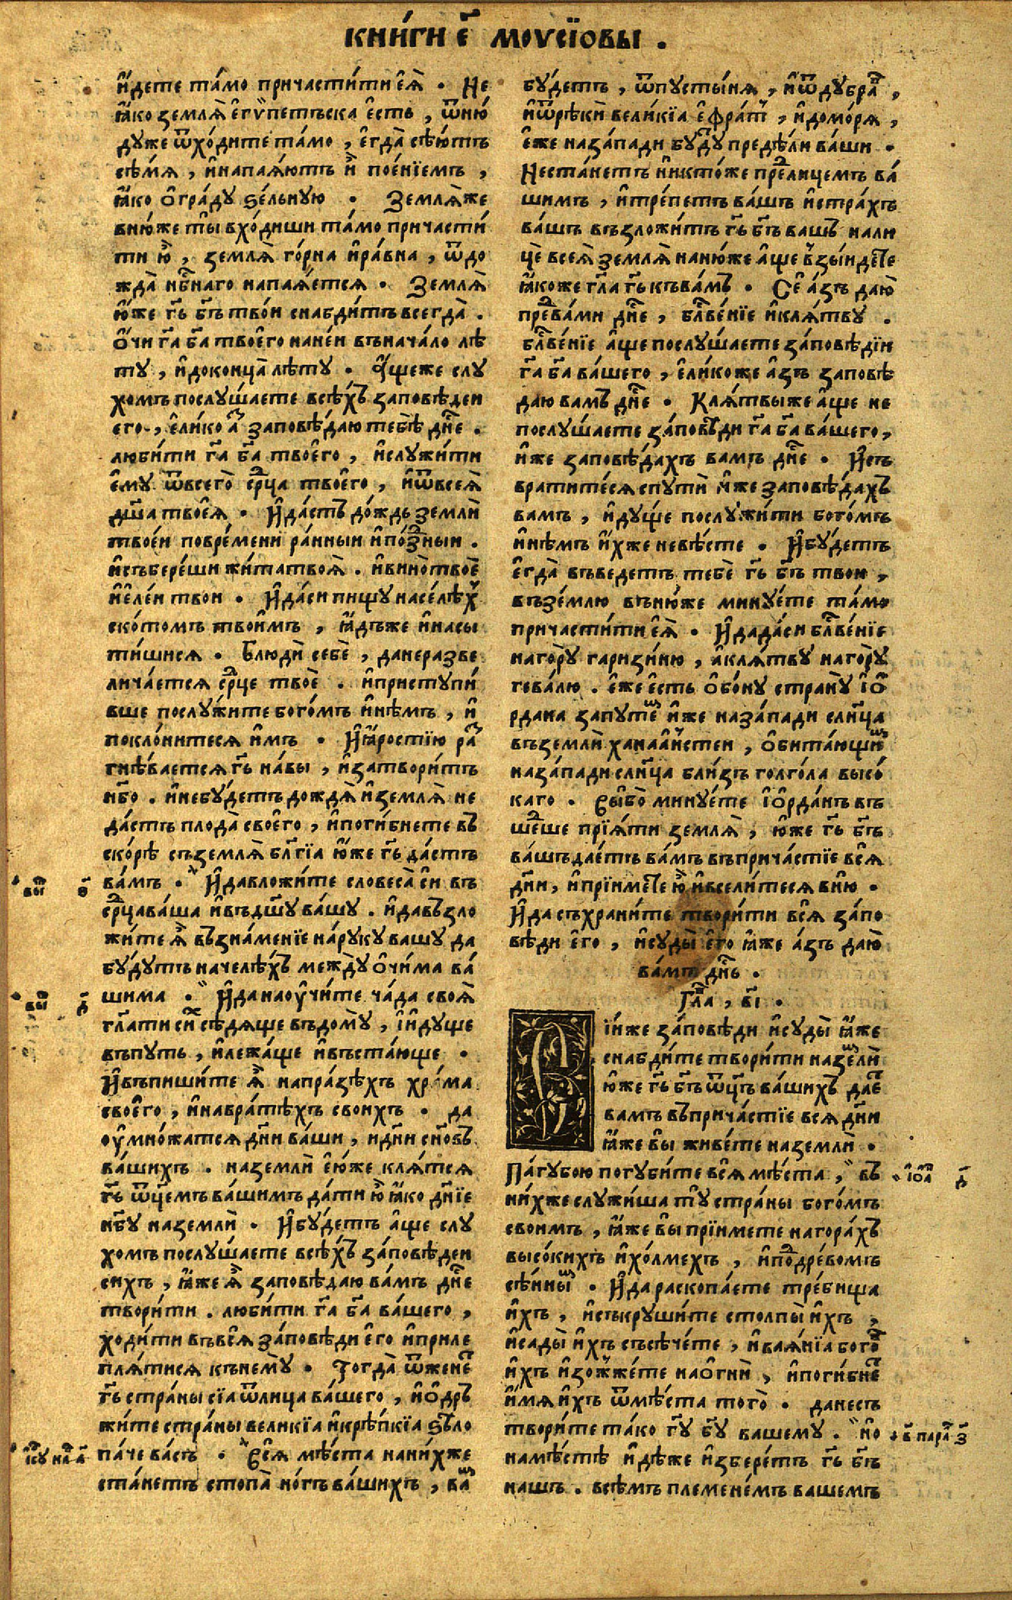 КНИ́ГИ Е҃ МОѴСІ́ОВЫ .
и҆́дете та́мо причасти́ти є҆ѧ̀ . Не
ꙗ҆́ко землѧ̀ є҆гѵ́петьска є҆́сть , ѿню́
дуже ѿхо́дите та́мо , є҆гда̀ сѣ́ютъ
сѣ́мѧ , и҆напаѧ́ютъ и҆̀ поє́нїемъ ,
ꙗ҆́ко о҆гра́ду ѕе́льную . Землѧ́же
вню́же ты̀ вхо́диши та́мо причасти́
ти ю҆̀ , землѧ̀ го́рна и҆ра́вна , ѿдо
ждѧ̀ нбⷭ҇наго напаѧ́ется . Землѧ̀
ю҆́же гь҃ бъ҃ твоѝ снабди́тъ всегда̀ .
О҆́чи га҃ ба҃ твоєго̀ нане́и внача́ло лѣ́
ту , и҆доконца̀ лѣ́ту . А҆́щеже слу
хомъ послу́шаете всѣ́хъ за́повѣдеи
его̀ , є҆ли́ко а҆́зъ заповѣ́даю тебѣ̀ дн҃е .
люби́ти га҃ ба҃ твоєго̀ , и҆служи́ти
є҆му̀ ѿвсего̀ срⷣца твоєго̀ , и҆ѿвсеѧ̀
дш҃а твоеѧ̀ . И҆да́стъ до́ждь землѝ
твое́и повре́мени ра́нныи и҆по́зныи .
и҆събере́ши жи́та твоѧ̀ . и҆вино̀ твоѐ
и҆єле́и твои . И҆да́си пи́щу насе́лѣхъ
ско́томъ твои́мъ , ꙗ҆́дъже и҆насы́
тишисѧ . Блюдѝ себѐ , данеразве
лича́ется срⷣце твоѐ . и҆приступи́
вше послу́жите бого́мъ и҆нѣ́мъ , и҆
покло́нитесѧ и҆̀мъ . И҆ꙗ҆́ростїю ра́з
гнѣ́вается гь҃ на́вы , и҆затвори́тъ
нб҃о . и҆небу́детъ дождѧ̀ и҆землѧ̀ не
да́стъ плода̀ своєго̀ , и҆поги́бнете въ
ско́рѣ съземлѧ̀ бл҃гїа ю҆́же гь҃ да́стъ
ва́мъ . И҆давложи́те словеса̀ сѝ въ
срⷣца ва́ша и҆въдш҃у ва́шу . и҆давъзло
жи́те ѧ҆̀ въ зна́менїе на́руку вашу да
бу́дутъ начелѣ́хъ междꙋ̀ о҆чи́ма ва́
шима . И҆да нау҆чи́те ча́да своѧ̀
гл҃ати сѝ сѣ́дѧще въдо́му , и҆и҆ду́ще
въпу́ть , и҆лежа́ще и҆въста́юще .
И҆въпиши́те ѧ҆̀ напра́зѣхъ хра́ма
своєго̀ , и҆навра́тѣхъ своихъ . да
оу҆мно́жатсѧ дн҃и ва́ши , и҆дн҃и сн҃о́въ
ва́шихъ . наземлѝ є҆ю́же клѧ́тсѧ
гь҃ ѿц҃емъ ва́шимъ да́ти ю҆̀ ꙗ҆́ко дн҃їе
нб҃у наземлѝ . И҆бу́детъ а҆́ще слу
хомъ послу́шаете всѣ́хъ за́повѣдеи
сихъ , ꙗ҆́же а҆́зъ заповѣ́даю ва́мъ дн҃е
твори́ти . люби́ти га҃ ба҃ ва́шего ,
ходи́ти въвсѧ̀ за́повѣди є҆го̀ и҆приле
плѧ́тисѧ къне́му . Тогда̀ ѿжене́т
гь҃ стра́ны сїа̀ ѿлица̀ ва́шего , и҆о҆дръ
жи́те стра́ны вели́кїа и҆крѣ́пкїа ѕѣло̀
па́че ва́съ . Всѧ̀ мѣ́ста наниѵ́же
ста́нетъ стопа̀ но́гъ ва́шихъ , ва́м
бу́детъ , ѿпусты́нѧ , и҆ѿ дубра́в ,
и҆ѿрѣкѝ вели́кїа є҆фра́т , и҆домо́рѧ ,
є҆́же наза́пади бу́ду преде́ли ва́ши .
Неста́нетъ никто́же прⷣелице́мъ ва́
шимъ , и҆тре́петъ ва́шъ и҆стра́хъ
ва́шъ възложи́тъ гь҃ бъ҃ вашъ нали
цѐ всеѧ̀ землѧ̀ наню́же а҆́ще взы́идете
ꙗ҆́коже гл҃а гь҃ къва́мъ . Сѐ а҆́зъ даю̀
преⷣва́ми дн҃е , блⷭ҇ве́нїе и҆клѧ́тву .
блⷭ҇ве́нїе а҆́ще послу́шаете за́повѣдїи
га҃ ба҃ ва́шего , є҆ли́коже а҆́зъ заповѣ́
даю вамъ дн҃е . Клѧ́твыже а҆́ще не
послу́шаете за́повѣди га҃ ба҃ ва́шего ,
и҆́же заповѣ́дахъ вамъ дн҃е . И҆съ
врати́тесѧ спутѝ и҆́же заповѣ́дахъ
вамъ , и҆ду́ще послужи́ти бого́мъ
и҆нѣ́мъ и҆́хже невѣ́сте . И҆бу́детъ
є҆гда̀ въведе́тъ тебѐ гь҃ бъ҃ твои ,
въ зе́млю въню́же мину́ете та́мо
причасти́ти є҆ѧ̀ . И҆ дада́си блⷭ҇ве́нїе
наго́ру гаризи́ню , а҆клѧ́тву наго́ру
гева́лю . є҆́же є҆́сть о҆бо́ну страну̀ і҆о҆
рдана запуте́м и҆́же наза́пади сл҃нца
въземлѝ ханаа҆́нстеи , о҆бита́ющи́м
наза́пади сл҃нца бли́зъ голго́ла высо́
каго . Вы́бо мину́ете і҆о҆рда́нъ въ
шеⷣше прїѧ́ти землѧ̀ , ю҆́же гь҃ бъ҃
ва́шъ дае́тъ ва́мъ въприча́стїе всѧ̀
дн҃и , и҆прїи́мете ю҆̀ и҆всели́тесѧ в ню̀ .
И҆да съхрани́те твори́ти всѧ̀ за́по
вѣди є҆го̀ , и҆суды̀ є҆го̀ ꙗ҆́же а҆́зъ даю̀
ва́мъ дн҃ь .
Гл҃а , ві҃ .
Сі́иже за́повѣди и҆суды̀ ꙗ҆́же
снабди́те твори́ти на землѝ
ю҆́же гь҃ бъ҃ ѿц҃ъ ва́шихъ дае́т
вамъ въприча́стїе всѧ дн҃и
ꙗ҆́же вы̀ живе́те на землѝ .
Па́губою погуби́те всѧ̀ мѣ́ста , въ
ни́хже служи́ша ту̀ стра́ны бого́мъ
своимъ , ꙗ҆́же вы̀ прїи́мете нагора́хъ
высо́кихъ и҆хо́лмехъ , и҆поⷣдре́вомъ
сѣ́нны́м . И҆да раскопа́ете тре́бища
и҆́хъ , и҆съкруши́те столпы̀ и҆́хъ ,
и҆сады̀ и҆́хъ съсѣче́те , и҆ваѧ́нїа бого́въ
и҆́хъ и҆зожже́те наогнѝ , и҆поги́бне
и҆́мѧ и҆́хъ ѿмѣ́ста того̀ . данесть
твори́те та́ко гу҃ бу҃ вашему . но
намѣ́стѣ и҆дѣ́же и҆збере́тъ гь҃ бъ҃
нашъ . всѣ́мъ племене́мъ вашемъ